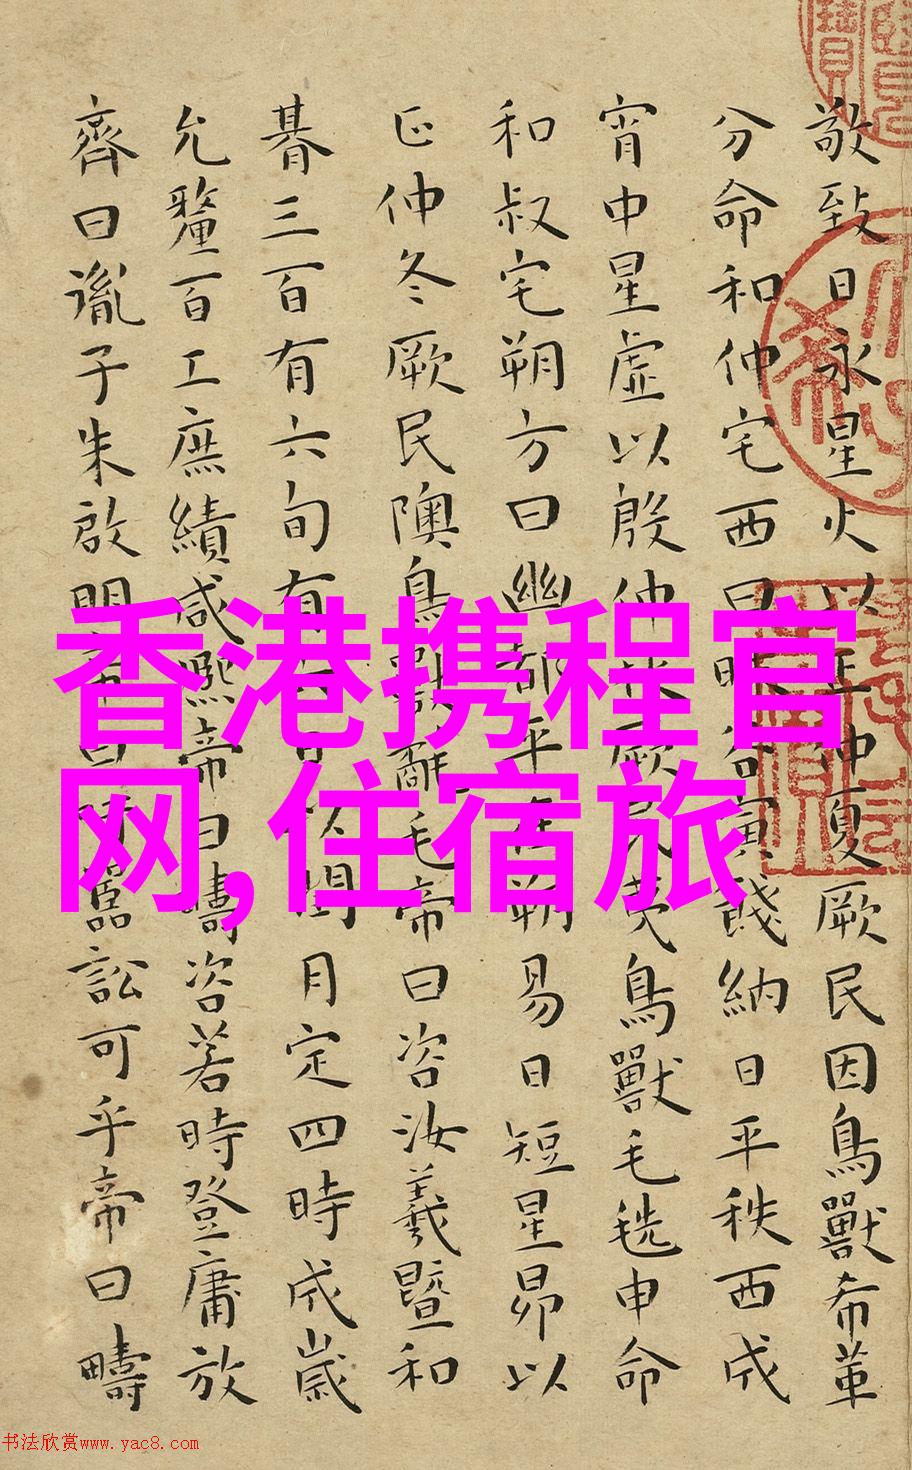 敬致日永星火以正仲夏厥民因鳥獸希革
分命和仲宅西曰昧谷寅餞納日平秩西成
宵中星虛以殷仲秋厥民夷鳥獸毛毨申命
和叔宅朔方曰幽都平在朔易日短星昴以
正仲冬厥民隩鳥獸氄毛帝曰咨汝羲暨和
朞三百有六旬有六日以閏月定四時成歲
允釐百工庶績咸熙帝曰疇咨若時登庸放
齊曰胤子朱啟明帝曰吁嚚訟可乎帝曰疇
香港携程官
网,住宿旅
书法欣赏www.yac8.com